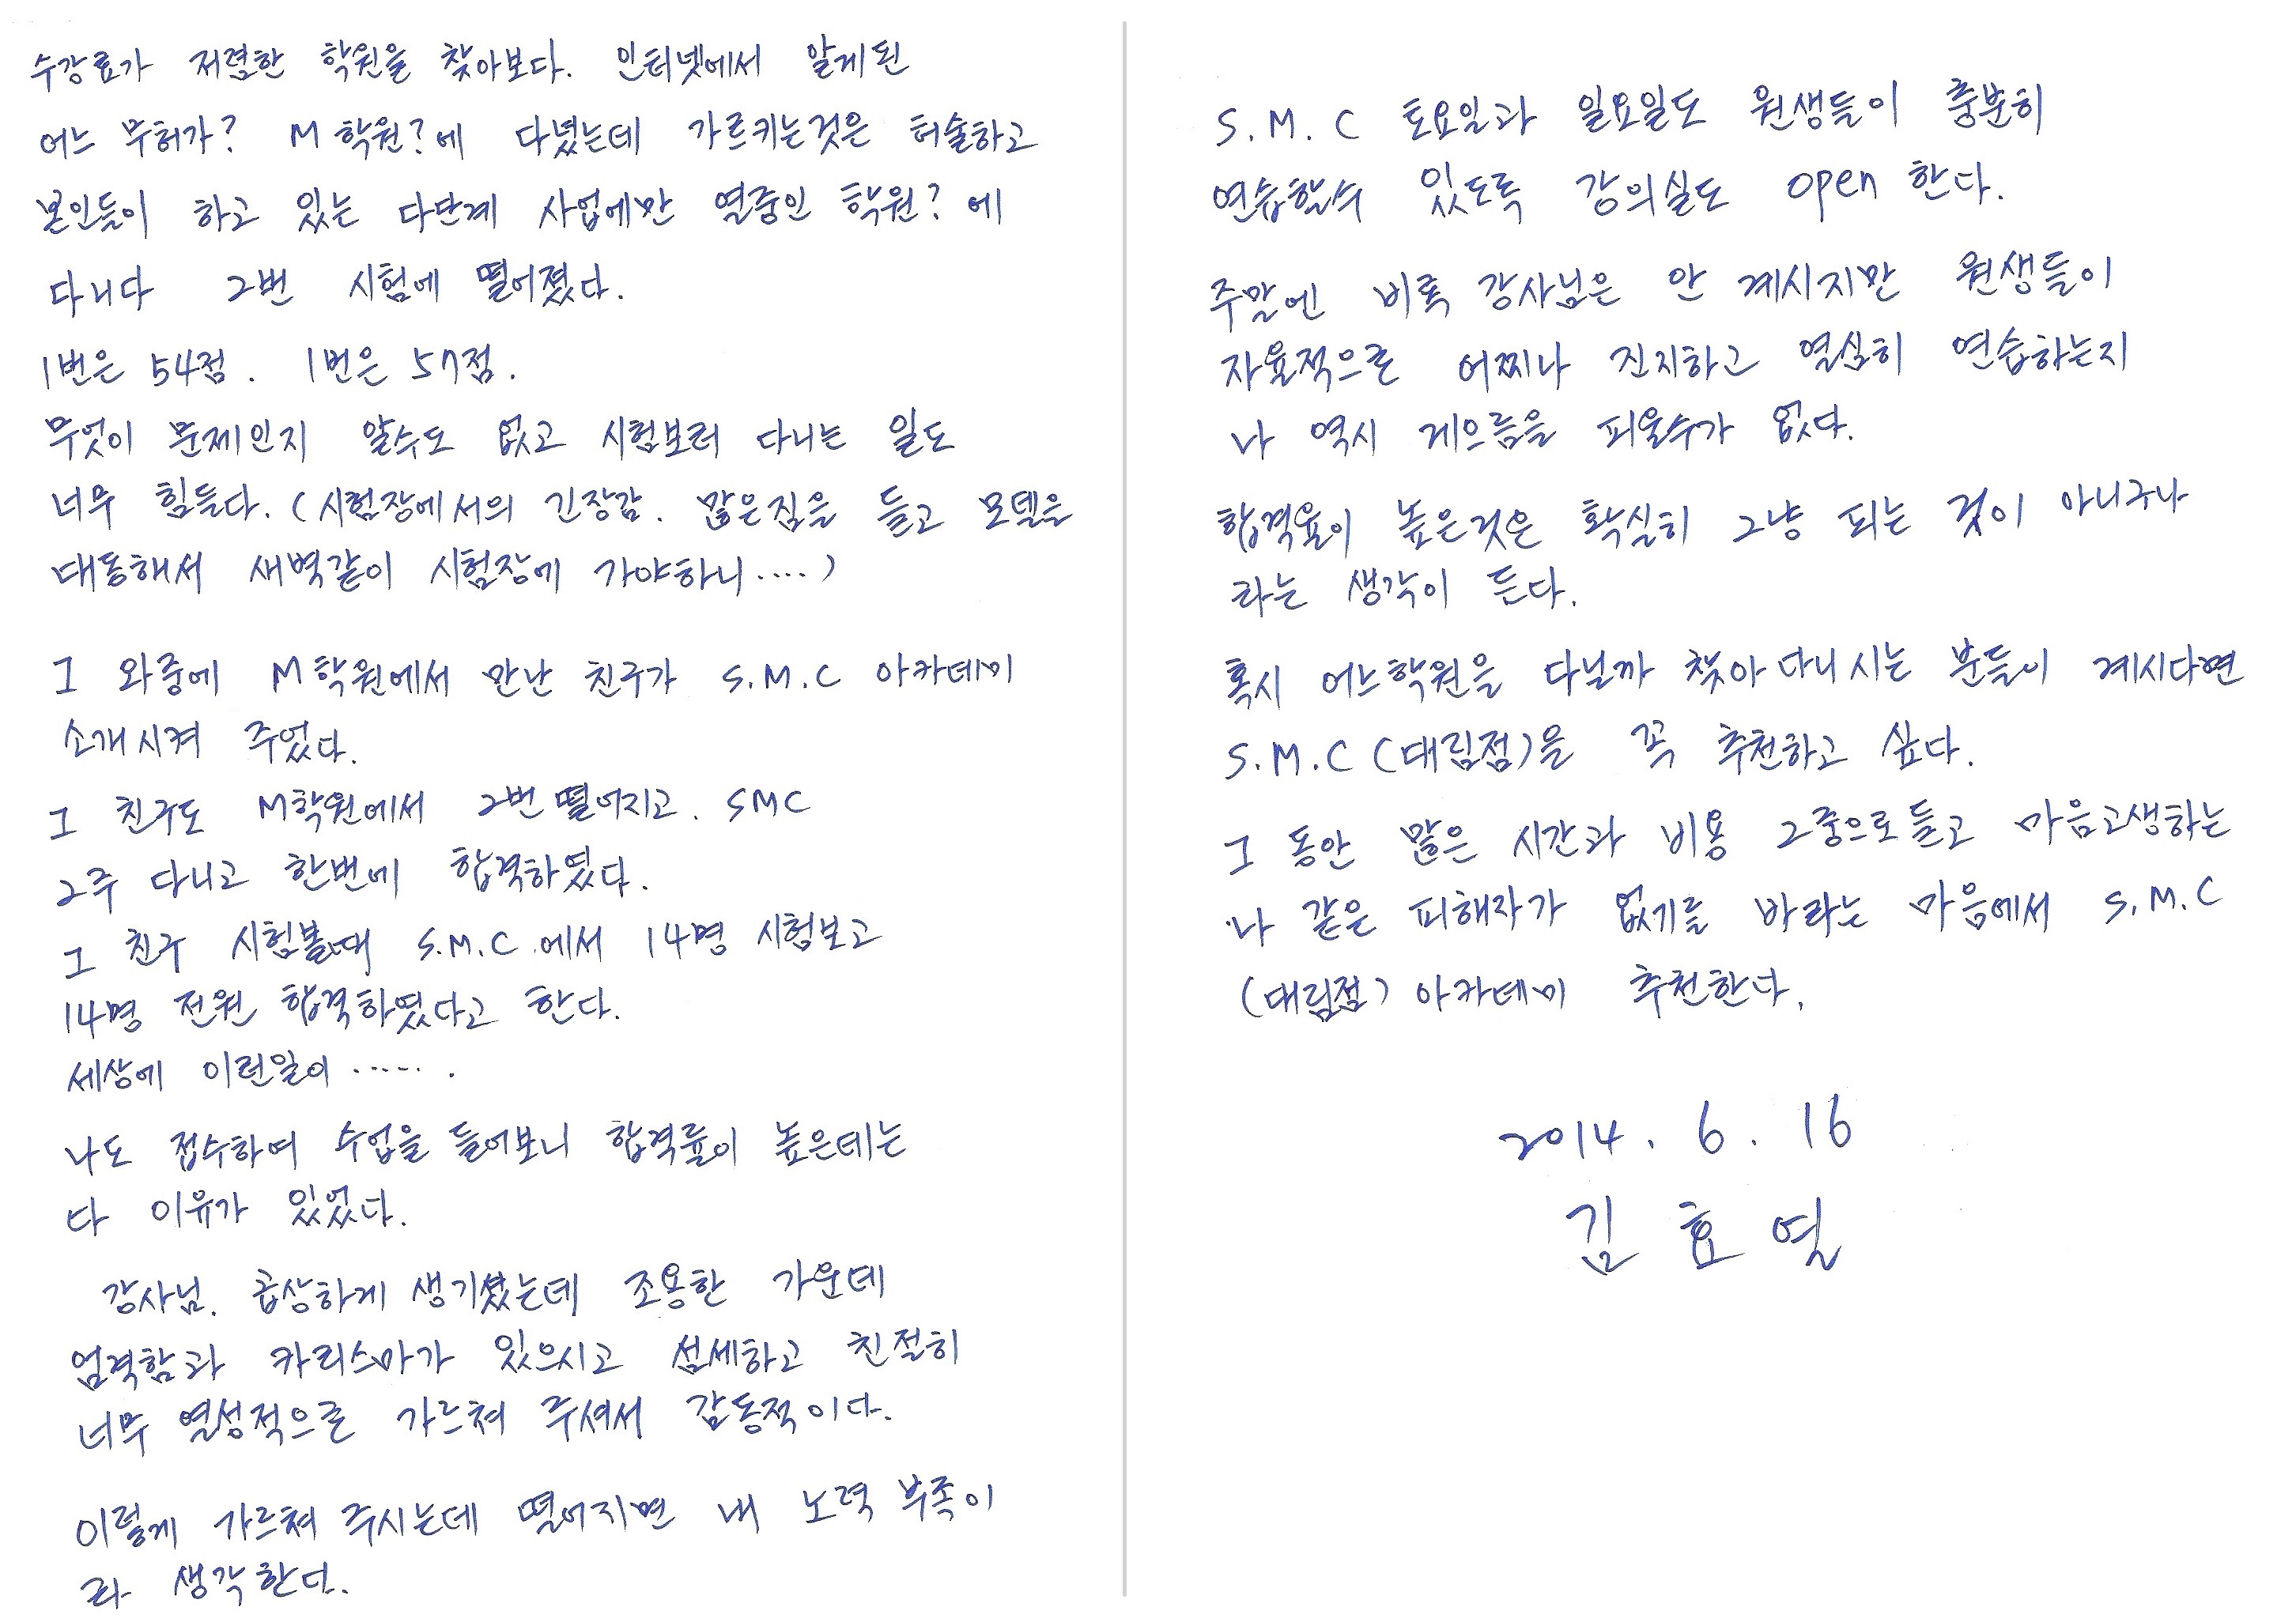 수강료가 저렴한 학원을 찾아보다. 인터넷에서 알게된
어느 무허가? M 학원?에 다녔는데 가르키는것은 허술하고
본인들이 하고 있는 다단계 사업에만 열중인 학원? 에
다니다 2번 시험에 떨어졌다.
1번은 54점. 1번은 57점.
무엇이 문제인지 알수도 없고 시험보러 다니는 일도
너무 힘들다. (시험장에서의 긴장감. 많은짐을 들고 모델을
대동해서 새벽같이 시험장에 가야하니....)
그 와중에 M학원에서 만난 친구가 S.M.C 아카데미
소개시켜 주었다.
그 친구도 M학원에서 2번 떨어지고. SMC
2주 다니고 한번에 합격하였다.
그 친구 시험볼때 S.M.C.에서 14명 시험보고
14명 전원 합격하였다고 한다.
세상에 이런일이 ...... .
나도 접수하여 수업을 들어보니 합격률이 높은데는
다 이유가 있었다.
강사님. 곱상하게 생기셨는데 조용한 가운데
엄격함과 카리스마가 있으시고 섬세하고 친절히
너무 열성적으로 가르쳐 주셔서 감동적이다.
이렇게 가르쳐 주시는데 떨어지면 내 노력 부족이
라 생각한다.
S.M.C 토요일과 일요일도 원생들이 충분히
연습할수 있도록 강의실도 open 한다.
주말엔 비록 강사님은 안 계시지만 원생들이
자율적으로 어찌나 진지하고 열심히 연습하는지
나 역시 게으름을 피울수가 없다.
합격율이 높은것은 확실히 그냥 되는 것이 아니구나
라는 생각이 든다.
혹시 어느학원을 다닐까 찾아다니시는 분들이 계시다면
S.M.C (대림점)을 꼭 추천하고 싶다.
그 동안 많은 시간과 비용 2중으로들고 마음고생하는
나 같은 피해자가 없기를 바라는 마음에서 S.M.C
(대림점) 아카데미 추천한다.
2014. 6. 16
김 효 열